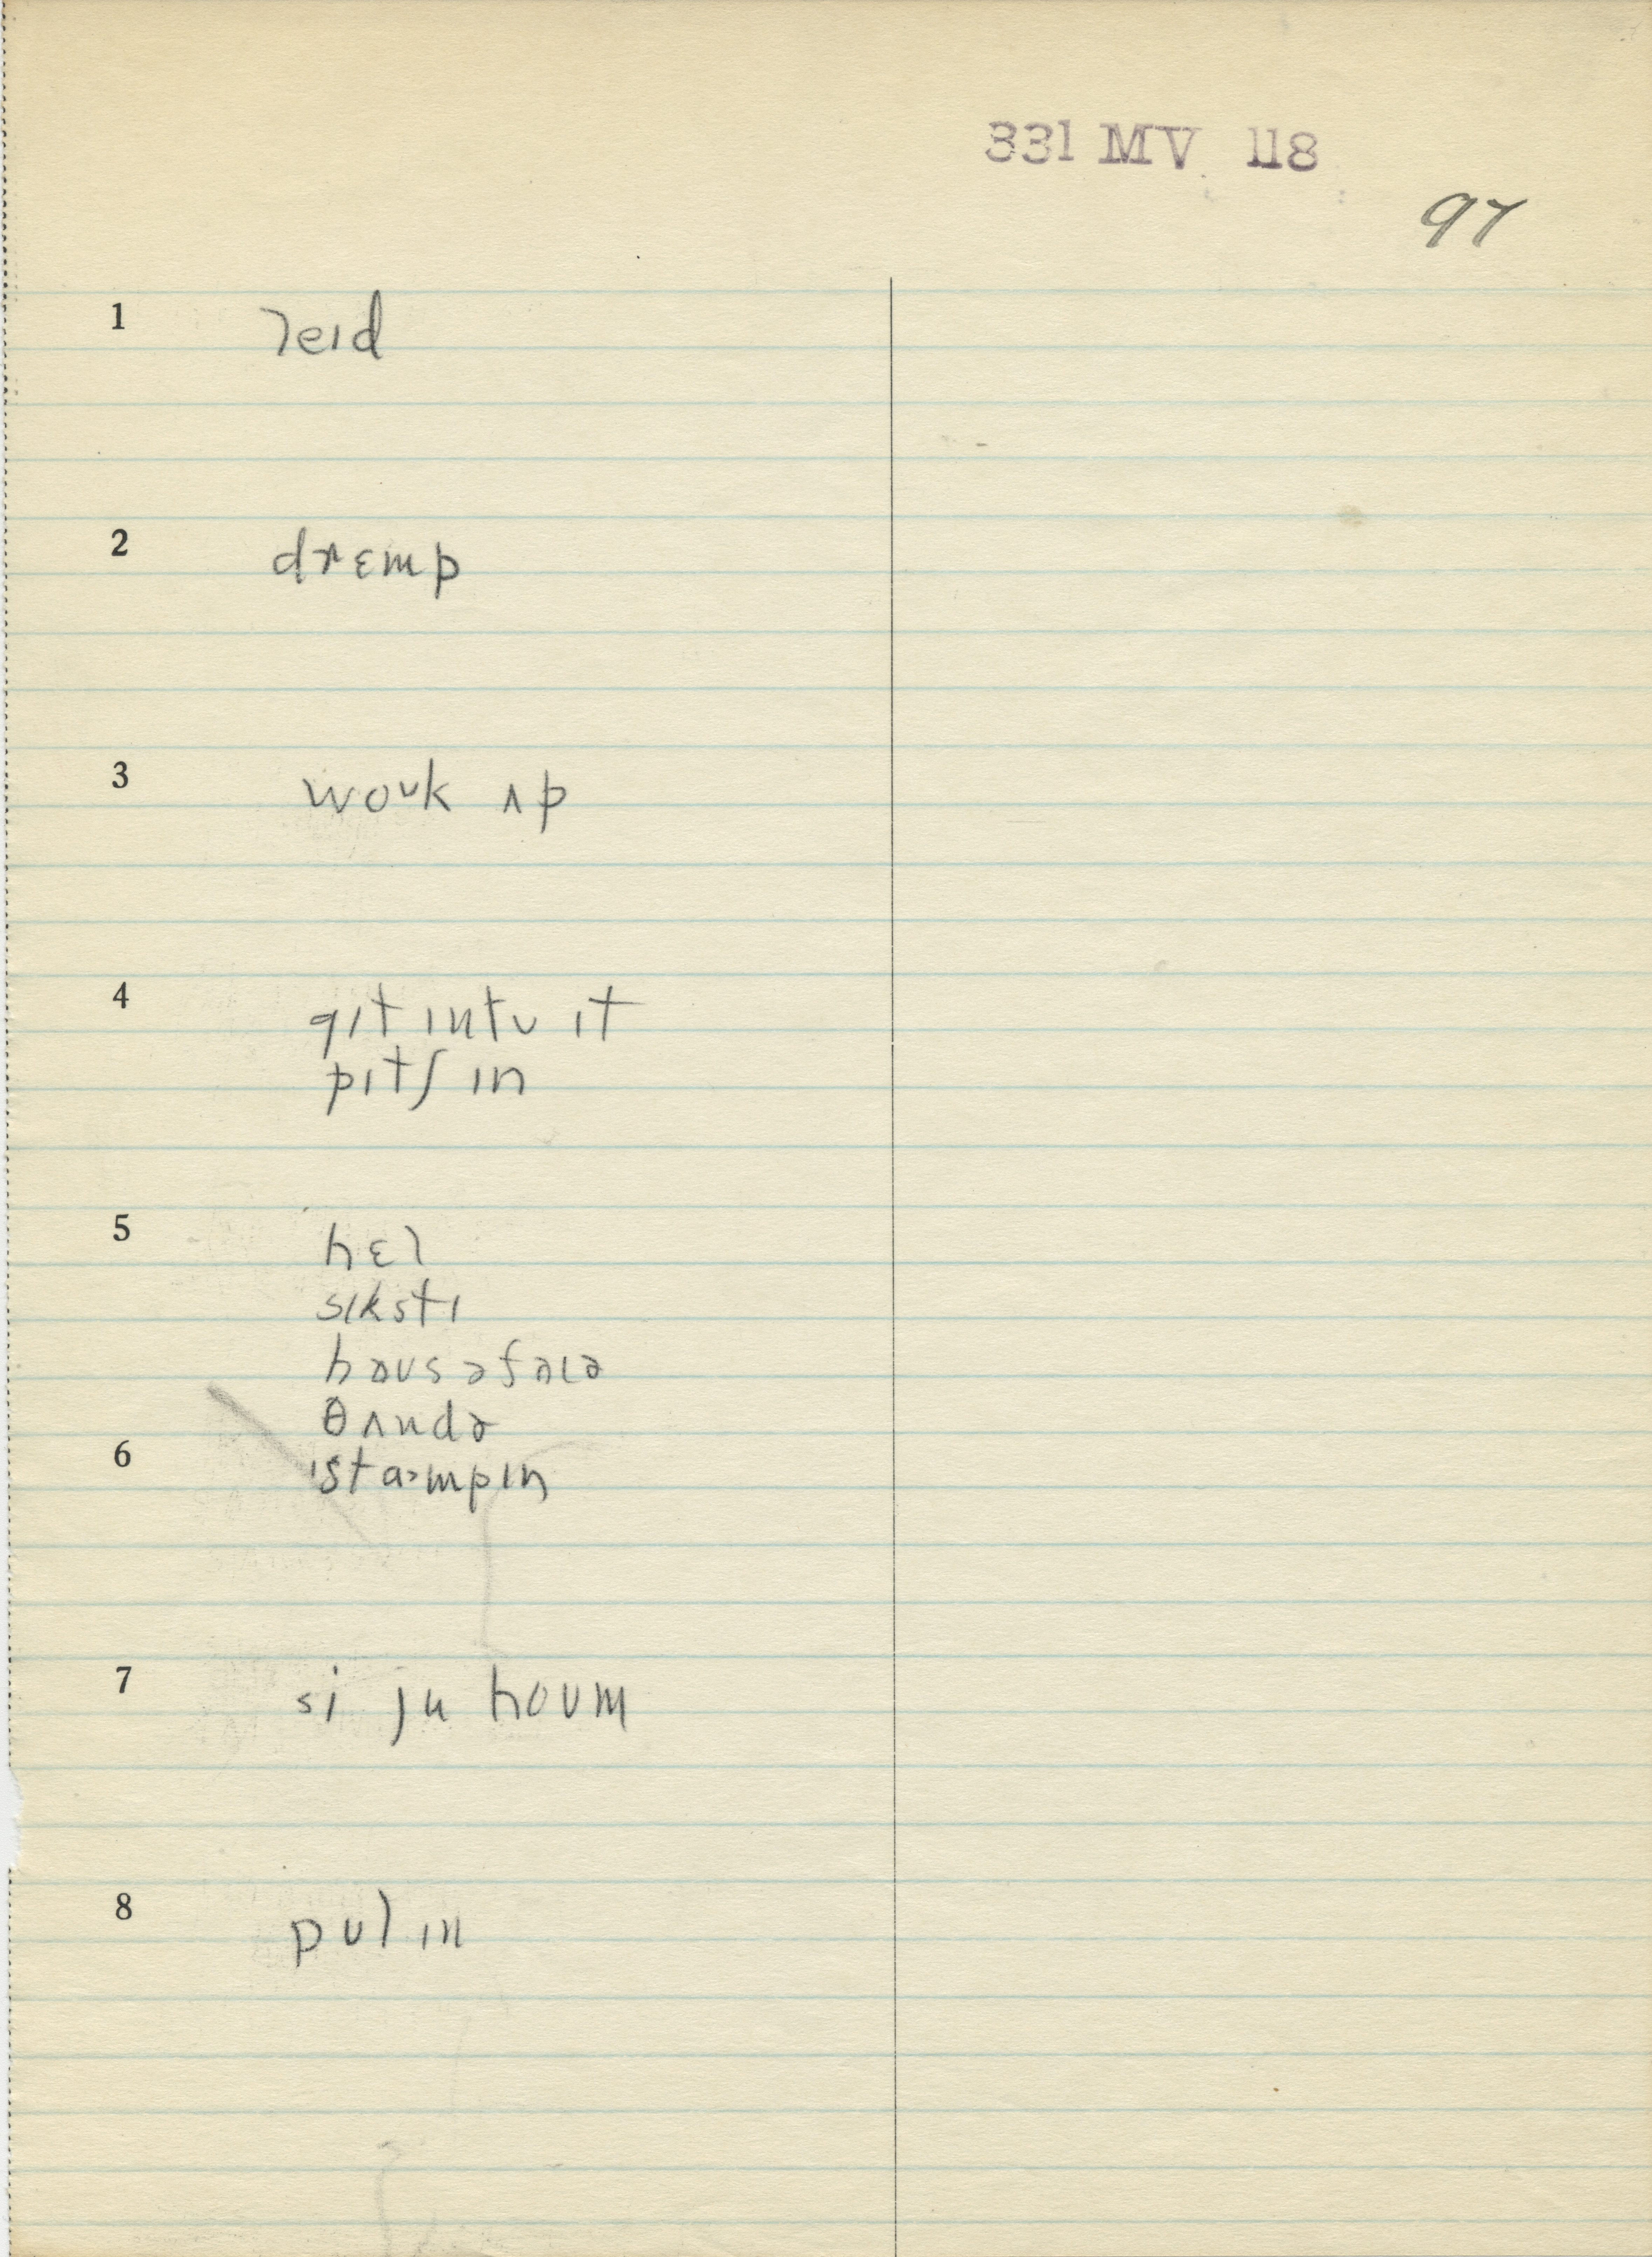 331 MV 118
97
1 leɪd
2 drɛmp
3 woʊk ʌp
4 gɪt ɪntʊ ɪt
pɪtʃ ɪn
5 hɛl
sɪkstɪ
haʊsəfaɪə
θʌndɚ
6 'stɒmpɪn
7 si ju hoʊm
8 pʊl ɪn